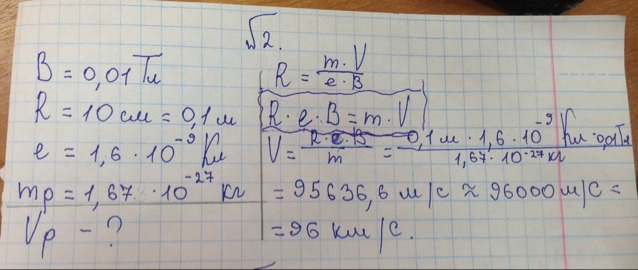 №2.
B = 0,01 Тл
R = 10 см = 0,1 м
e = 1,6 · 10⁻⁹ Кл
mp = 1,67 · 10⁻²⁷ кг
Vp - ?
R = m · V / e · B
R · e · B = m · V
V = R · e · B / m = 0,1 м · 1,6 · 10⁻⁹ Кл · 0,01 Тл / 1,67 · 10⁻²⁷ кг
= 95636,6 м/с ≈ 96000 м/с =
= 96 км/с.